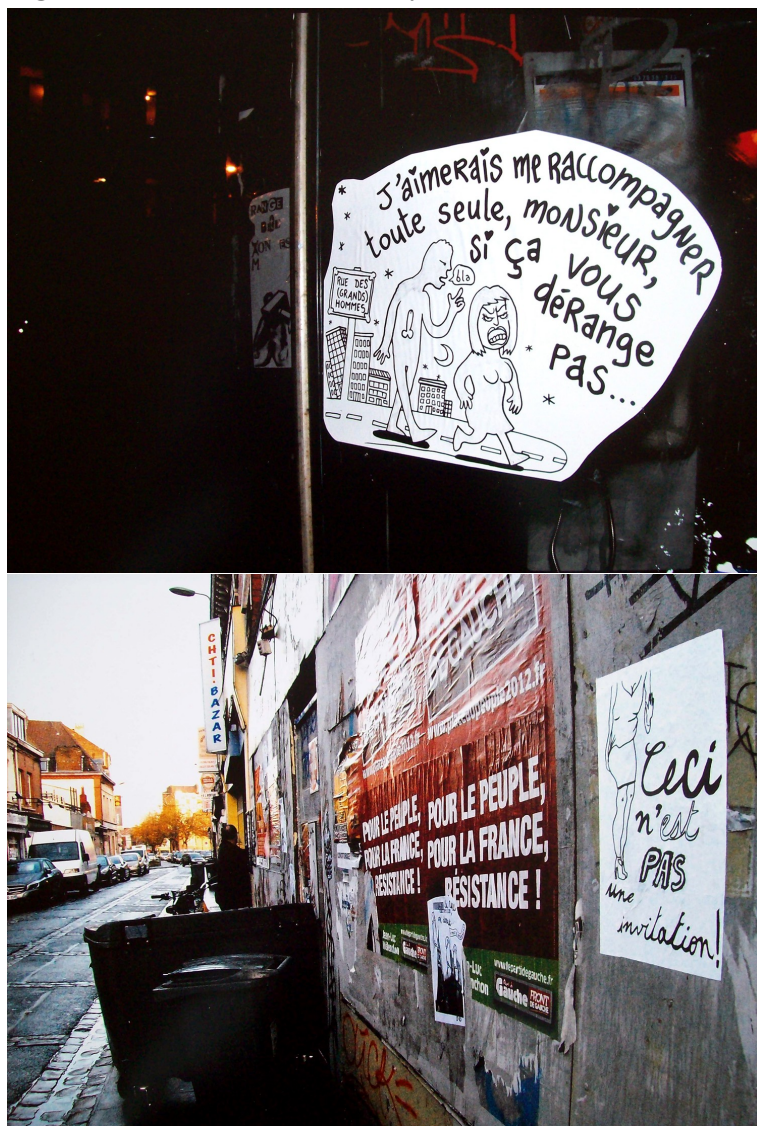 J'aimerais me raccompagner
toute seule, monsieur,
si ça vous
dérange
pas...
bla
RUE DES
(GRANDS)
HOMMES
CHTI-BAZAR
GAUCHE
POUR LE PEUPLE,
POUR LA FRANCE,
RÉSISTANCE !
POUR LE PEUPLE,
POUR LA FRANCE,
RÉSISTANCE !
www.lepartidegauche.fr
Gauche
FRONT
DE GAUCHE
Ceci
n'est
PAS
une
invitation!